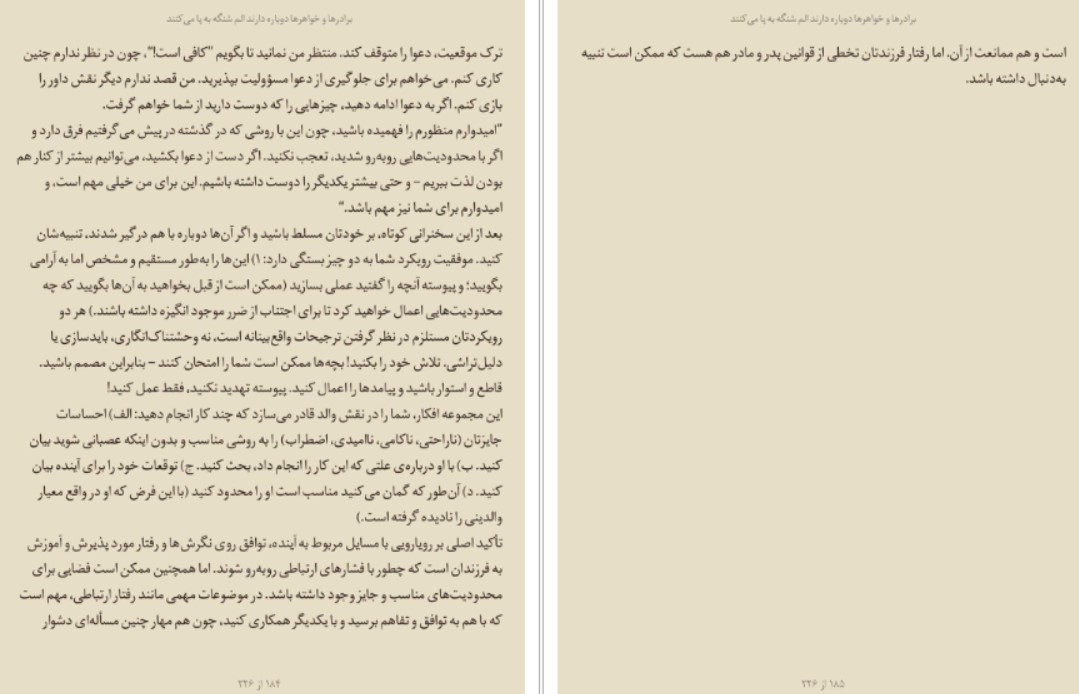 برادرها و خواهرها دوباره دارند الم شنگه به پا می‌کنند
ترک موقعیت، دعوا را متوقف کند. منتظر من نمانید تا بگویم "کافی است!"، چون در نظر ندارم چنین
کاری کنم. می‌خواهم برای جلوگیری از دعوا مسؤولیت بپذیرید. من قصد ندارم دیگر نقش داور را
بازی کنم. اگر به دعوا ادامه دهید، چیزهایی را که دوست دارید از شما خواهم گرفت.
"امیدوارم منظورم را فهمیده باشید، چون این با روشی که در گذشته در پیش می‌گرفتیم فرق دارد و
اگر با محدودیت‌هایی روبه‌رو شدید، تعجب نکنید. اگر دست از دعوا بکشید، می‌توانیم بیشتر از کنار هم
بودن لذت ببریم – و حتی بیشتر یکدیگر را دوست داشته باشیم. این برای من خیلی مهم است، و
امیدوارم برای شما نیز مهم باشد."
بعد از این سخنرانی کوتاه، بر خودتان مسلط باشید و اگر آن‌ها دوباره با هم درگیر شدند، تنبیه‌شان
کنید. موفقیت رویکرد شما به دو چیز بستگی دارد: ۱) این‌ها را به‌طور مستقیم و مشخص اما به آرامی
بگویید؛ و پیوسته آنچه را گفتید عملی بسازید (ممکن است از قبل بخواهید به آن‌ها بگویید که چه
محدودیت‌هایی اعمال خواهید کرد تا برای اجتناب از ضرر موجود انگیزه داشته باشند.) هر دو
رویکردتان مستلزم در نظر گرفتن ترجیحات واقع‌بینانه است، نه وحشتناک‌انگاری، بایدسازی یا
دلیل‌تراشی. تلاش خود را بکنید! بچه‌ها ممکن است شما را امتحان کنند – بنابراین مصمم باشید.
قاطع و استوار باشید و پیامدها را اعمال کنید. پیوسته تهدید نکنید، فقط عمل کنید!
این مجموعه افکار، شما را در نقش والد قادر می‌سازد که چند کار انجام دهید: الف) احساسات
جایزتان (ناراحتی، ناکامی، ناامیدی، اضطراب) را به روشی مناسب و بدون اینکه عصبانی شوید بیان
کنید. ب) با او درباره‌ی علتی که این کار را انجام داد، بحث کنید. ج) توقعات خود را برای آینده بیان
کنید. د) آن‌طور که گمان می‌کنید مناسب است او را محدود کنید (با این فرض که او در واقع معیار
والدینی را نادیده گرفته است.)
تأکید اصلی بر رویارویی با مسایل مربوط به آینده، توافق روی نگرش‌ها و رفتار مورد پذیرش و آموزش
به فرزندان است که چطور با فشارهای ارتباطی روبه‌رو شوند. اما همچنین ممکن است فضایی برای
محدودیت‌های مناسب و جایز وجود داشته باشد. در موضوعات مهمی مانند رفتار ارتباطی، مهم است
که با هم به توافق و تفاهم برسید و با یکدیگر همکاری کنید، چون هم مهار چنین مسأله‌ای دشوار
۱۸۴ از ۲۲۶
برادرها و خواهرها دوباره دارند الم شنگه به پا می‌کنند
است و هم ممانعت از آن. اما رفتار فرزندتان تخطی از قوانین پدر و مادر هم هست که ممکن است تنبیه
به‌دنبال داشته باشد.
۱۸۵ از ۲۲۶